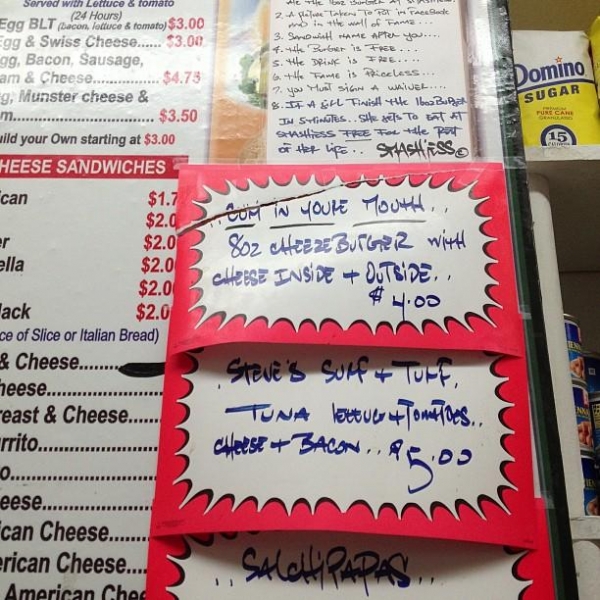 Served with Lettuce & tomato
(24 Hours)
Egg BLT (bacon, lettuce & tomato) $3.00
Egg & Swiss Cheese...... $3.00
Egg, Bacon, Sausage,
am & Cheese............... $4.75
g, Munster cheese &
m.............. $3.50
uild your Own starting at $3.00
HEESE SANDWICHES
can $1.7
$2.0
er $2.0
ella $2.0
$2.0
Jack $2.0
ce of Slice or Italian Bread)
& Cheese.........
heese.........
reast & Cheese.....
rrito.........
o.........
eese.........
ican Cheese.....
erican Cheese...
American Chee
2. A Picture Taken To Put in FaceBook
and in the wall of Fame...
3. Sandwich Name After you....
4. the Burger is FREE...
5. the Drink is FREE...
6. the Fame is Priceless...
7. you Must sign A waiver...
8. If A girl Finish the 16oz Burger
In 5 minutes.. She gets to Eat At
Stashiess FREE For the Rest
of Her Life..
CUM IN YOURE MOUTH...
8oz cheeze Burger with
cheese Inside + Outside..
$4.00
Steve's Surf + Turf,
Tuna lettuce + Tomatoes..
cheese + Bacon.. $5.00
.. Salchipapas...
Domino
SUGAR
PREMIUM
PURE CANE
GRANULATED
15